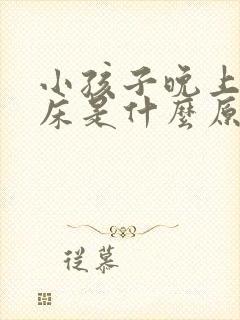 小孩子晚上
床是什麽原
從慕